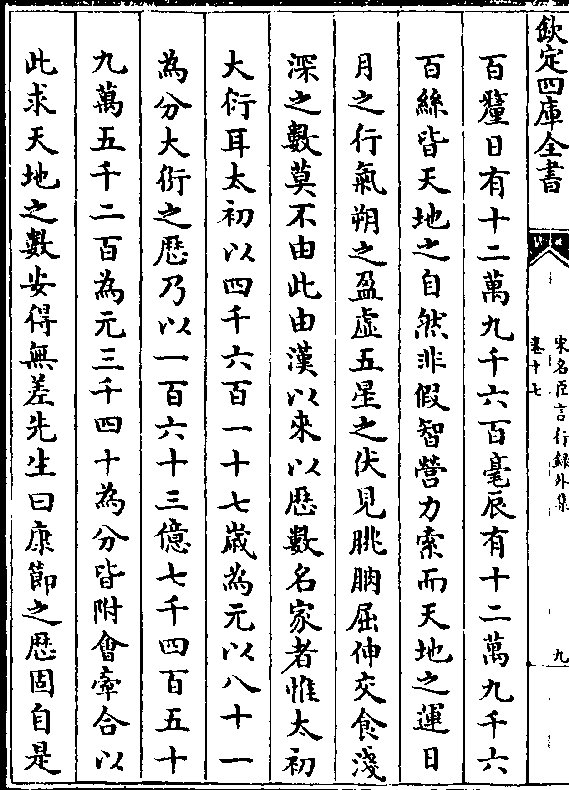 欽定四庫全書
宋名臣言行録外集
卷十七
九
百釐日有十二萬九千六百毫辰有十二萬九千六
百絲皆天地之自然非假智營力索而天地之運日
月之行氣朔之盈虚五星之伏見朓朒屈伸交食淺
深之數莫不由此由漢以來以厯數名家者惟太初
大衍耳太初以四千六百一十七歳為元以八十一
為分大衍之厯乃以一百六十三億七千四百五十
九萬五千二百為元三千四十為分皆附會牽合以
此求天地之數安得無差先生曰康節之厯固自是